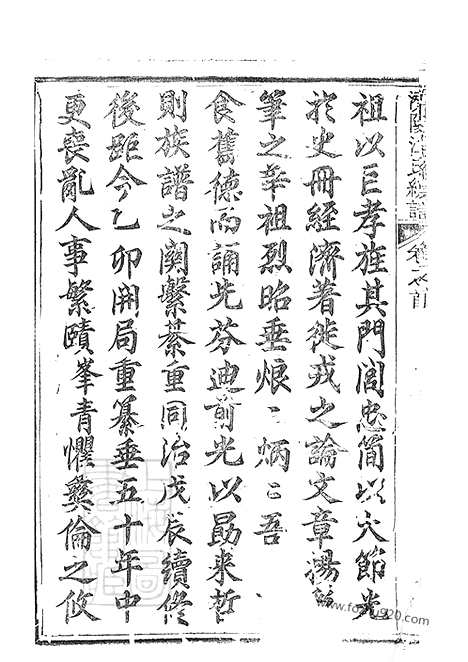 祖以巨孝旌其門閭忠简以大節光
於史冊經濟著徙戎之論文章揚
筆之華祖烈昭垂烺〻炳〻吾
食舊德而誦先芬迪前光以勗來哲
則族譜之関繫綦重同治戊辰續修
後距今乙卯開局重纂垂五十年中
更喪亂人事繁賾峯青懼彝倫之攸
卷之首